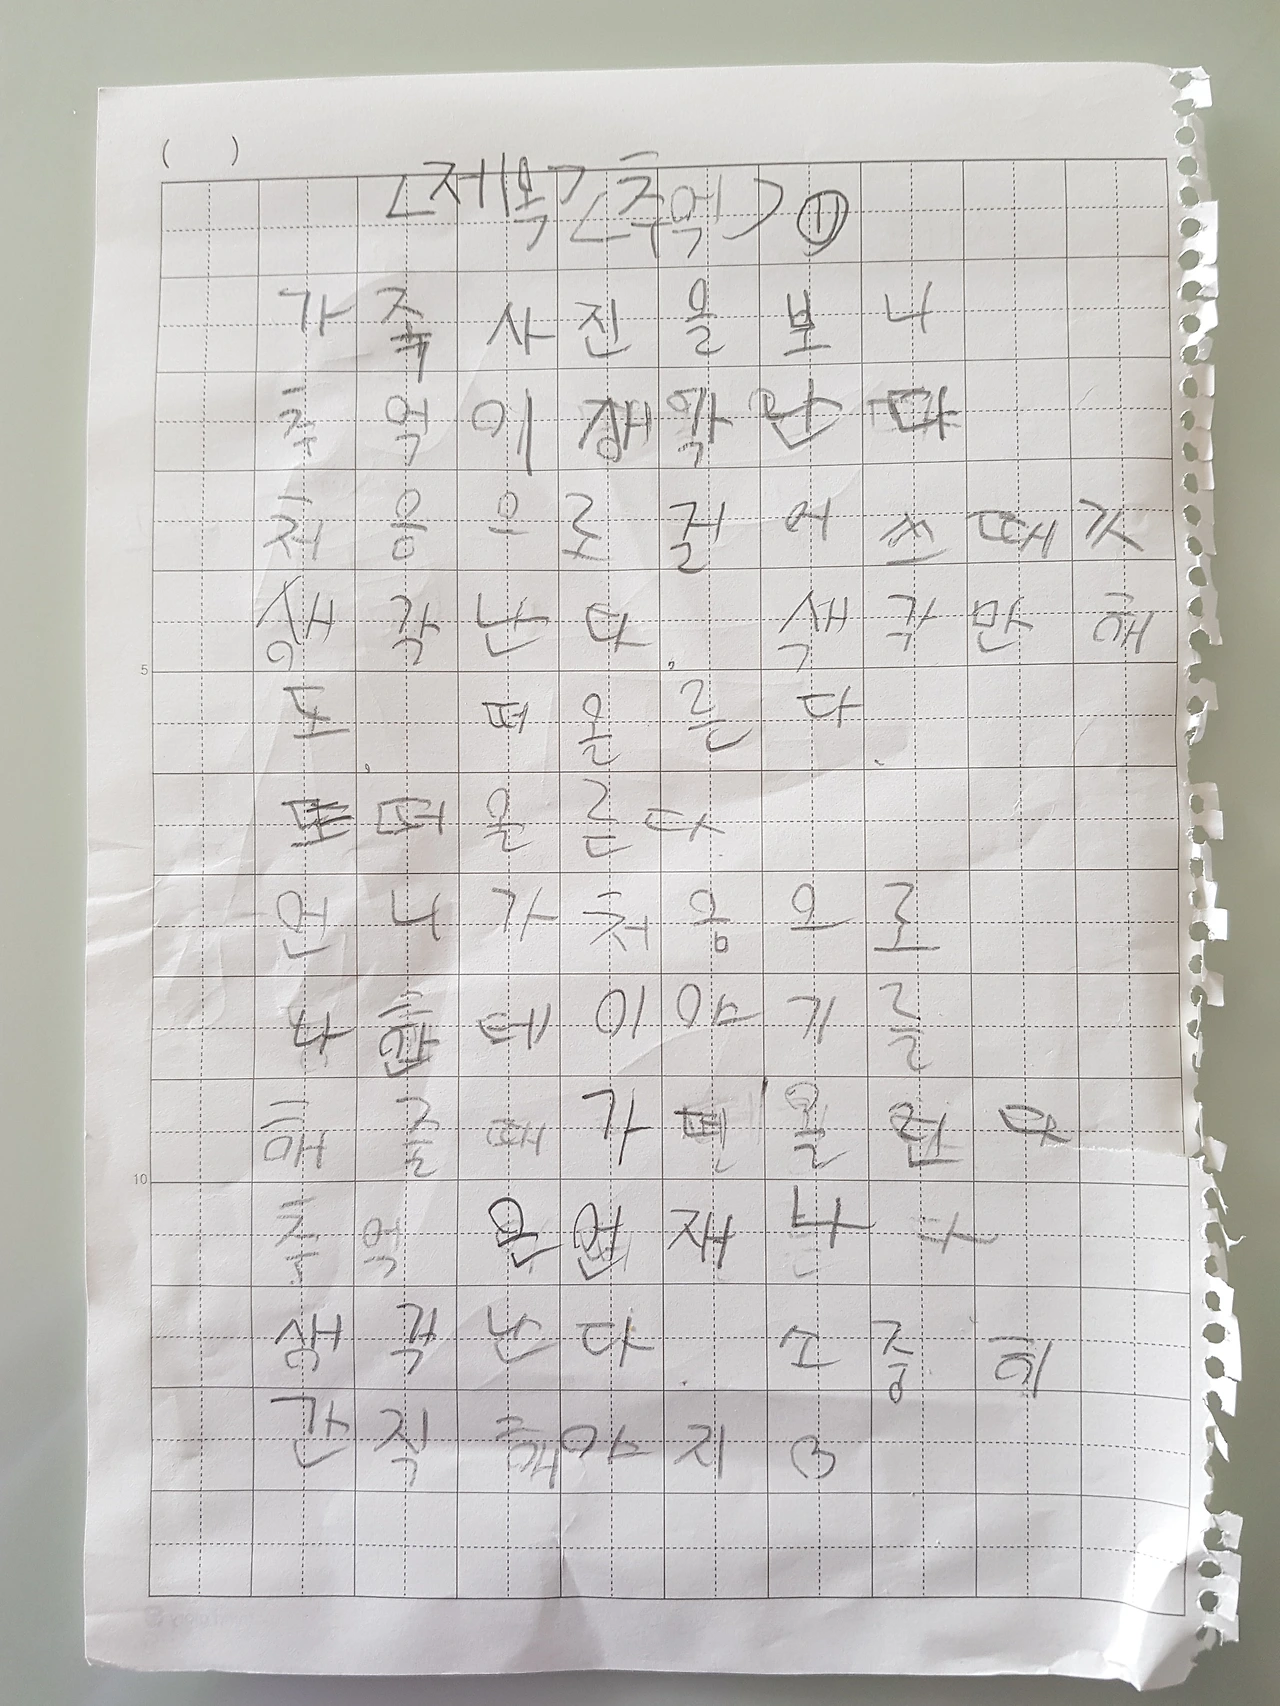 ( )
<제목><추억>⑪
가족 사진을 보니
추억이 생각난다
처음으로 걸어쓰때가
생각난다. 생각만해
도 떠올른다.
또떠올른다
5
언니가처음으로
나한테이야기를
해줄때가떠올련다
10
추억은언재나다
생각난다. 소중히
간직해야지